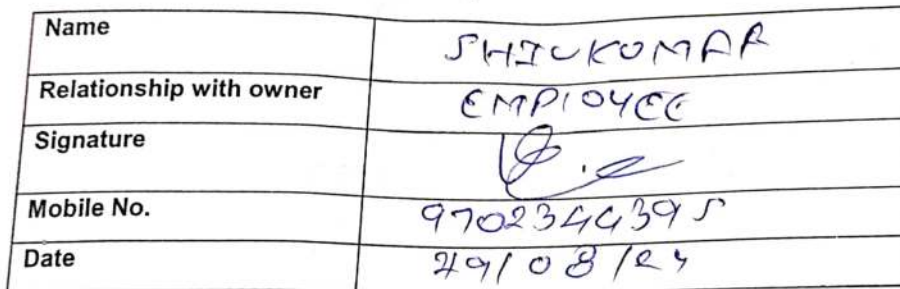 Name SHIVKUMAR
Relationship with owner EMPLOYEE
Signature
Mobile No. 9702344395
Date 29/08/24